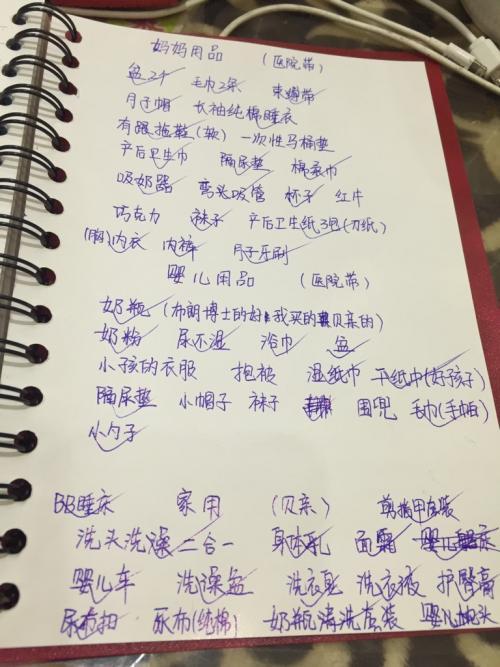 妈妈用品 (医院带)
盆2个 毛巾2条 束缚带
月子帽 长袖纯棉睡衣
有跟拖鞋(软) 一次性马桶垫
产后卫生巾 隔尿垫 棉柔巾
吸奶器 弯头吸管 杯子 红片
巧克力 袜子 产后卫生纸3包(刀纸)
(胸)内衣 内裤 月子牙刷
婴儿用品 (医院带)
奶瓶 (布朗博士的好 我买的 贝亲的)
奶粉 尿不湿 浴巾 盆
小孩的衣服 抱被 湿纸巾 干纸巾(好孩子)
隔尿垫 小帽子 袜子 围兜 毛巾(手帕)
小勺子
BB睡床 家用 (贝亲) 剪指甲套装
洗头洗澡二合一 身体乳 面霜 婴儿床
婴儿车 洗澡盆 洗衣皂 洗衣液 护臀膏
尿布扣 尿布(纯棉) 奶瓶清洗套装 婴儿枕头